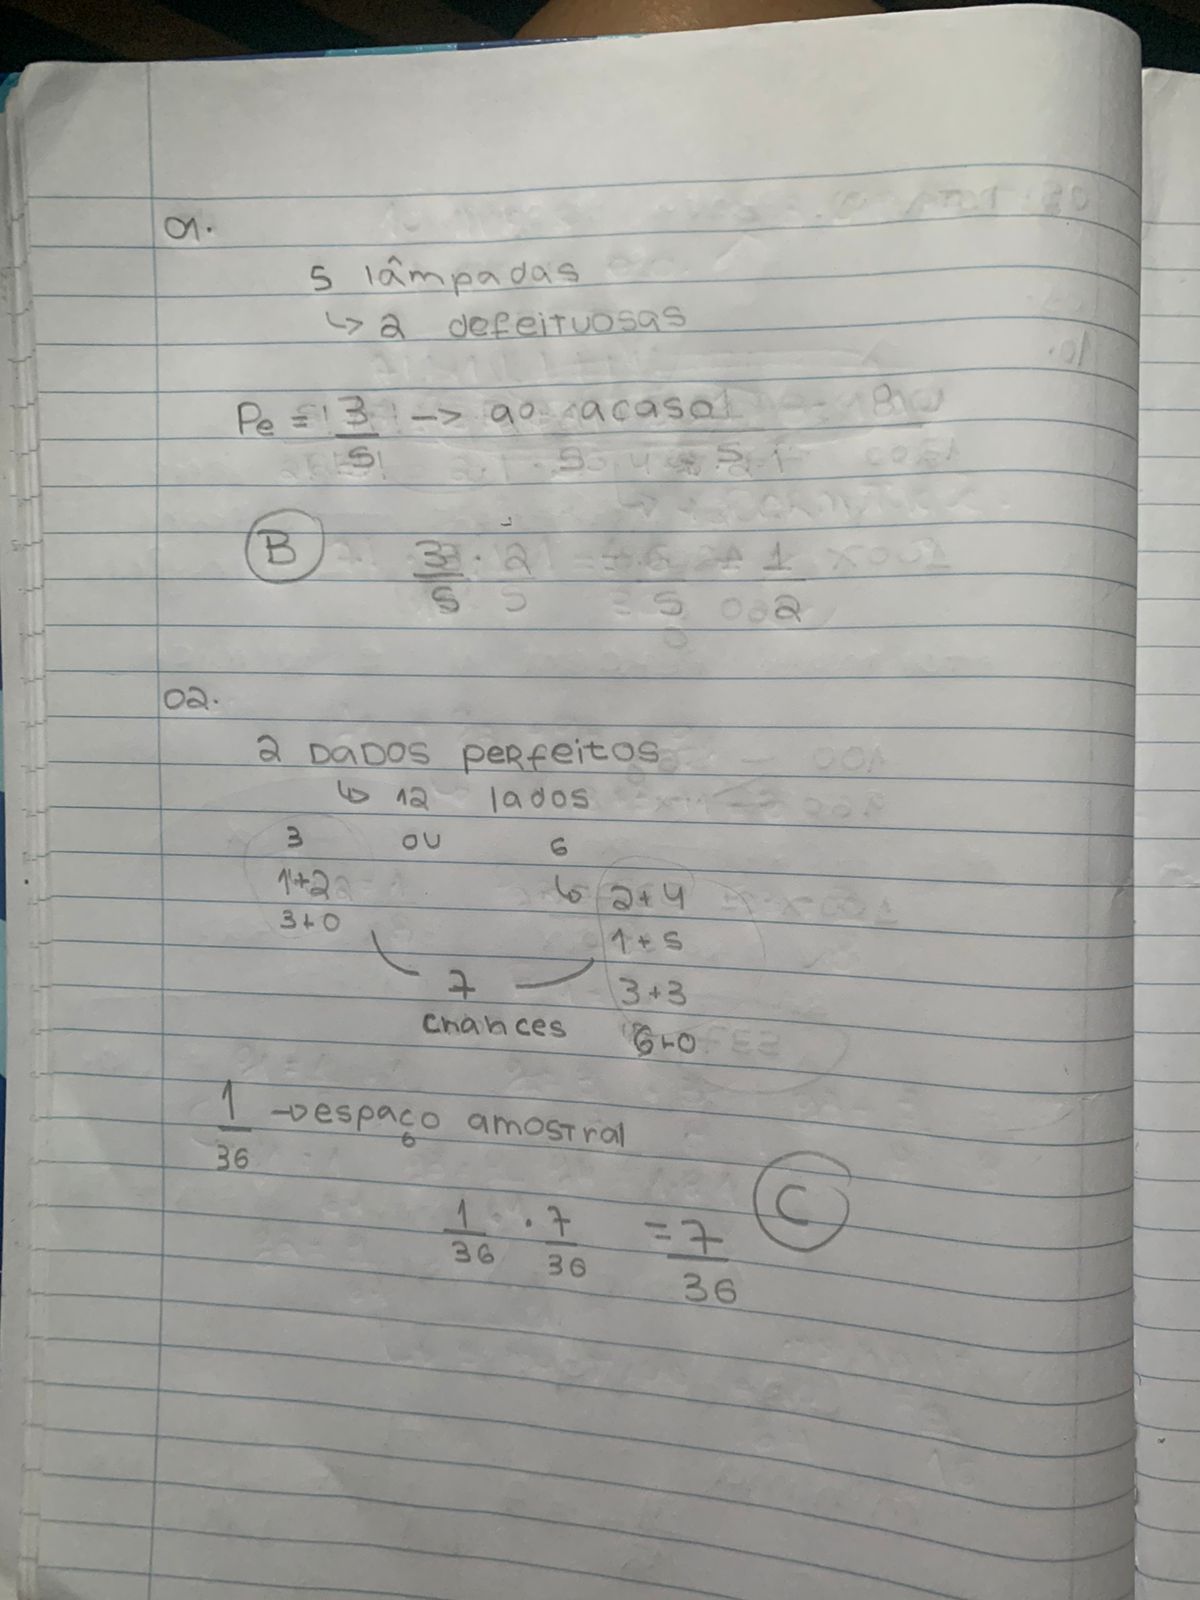 01.
5 lâmpadas
↳ 2 defeituosas
Pe = 3/5 -> ao acaso
B 3/5 . 2 1/2
02.
2 DADOS PERFEITOS
↳ 12 lados
3 ou 6
1+2 ↳ 2+4
3+0 1+5
7 3+3
chances 6+0
1/36 -> espaço amostral
1/36 . 7/36 = 7/36 C